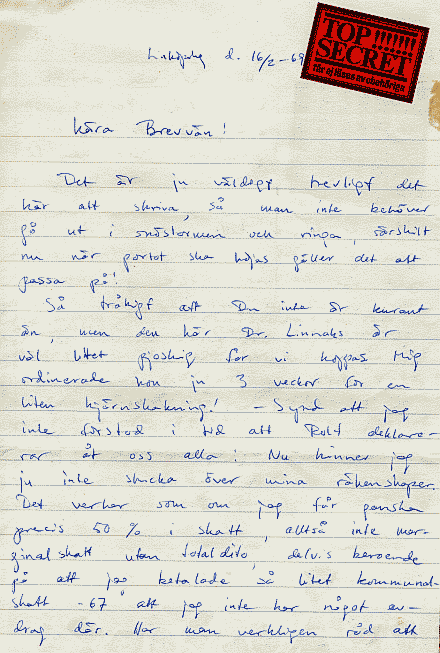 Linköping d. 16/2 -69
TOP !!!!!!!
SECRET
får ej läsas av obehöriga
Kära Brevvän!
Det är ju väldigt trevligt det
här att skriva, så man inte behöver
gå ut i snöstormen och ringa, särskilt
nu när portot ska höjas gäller det att
passa på!
Så tråkigt att Du inte är kurant
än, men den här Dr. Linnaks är
väl litet pjoskig för vi hoppas. Mig
ordinerade hon ju 3 veckor för en
liten hjärnskakning! - Synd att jag
inte förstod i tid att Rolf deklare-
rar åt oss alla! Nu hinner jag
ju inte skicka över mina räkenskaper.
Det verkar som om jag får ganska
precis 50 % i skatt, alltså inte mar-
ginalskatt utan total dito, delvis beroende
på att jag betalade så litet kommunal-
skatt -67 att jag inte har något av-
drag där. Har man verkligen råd att